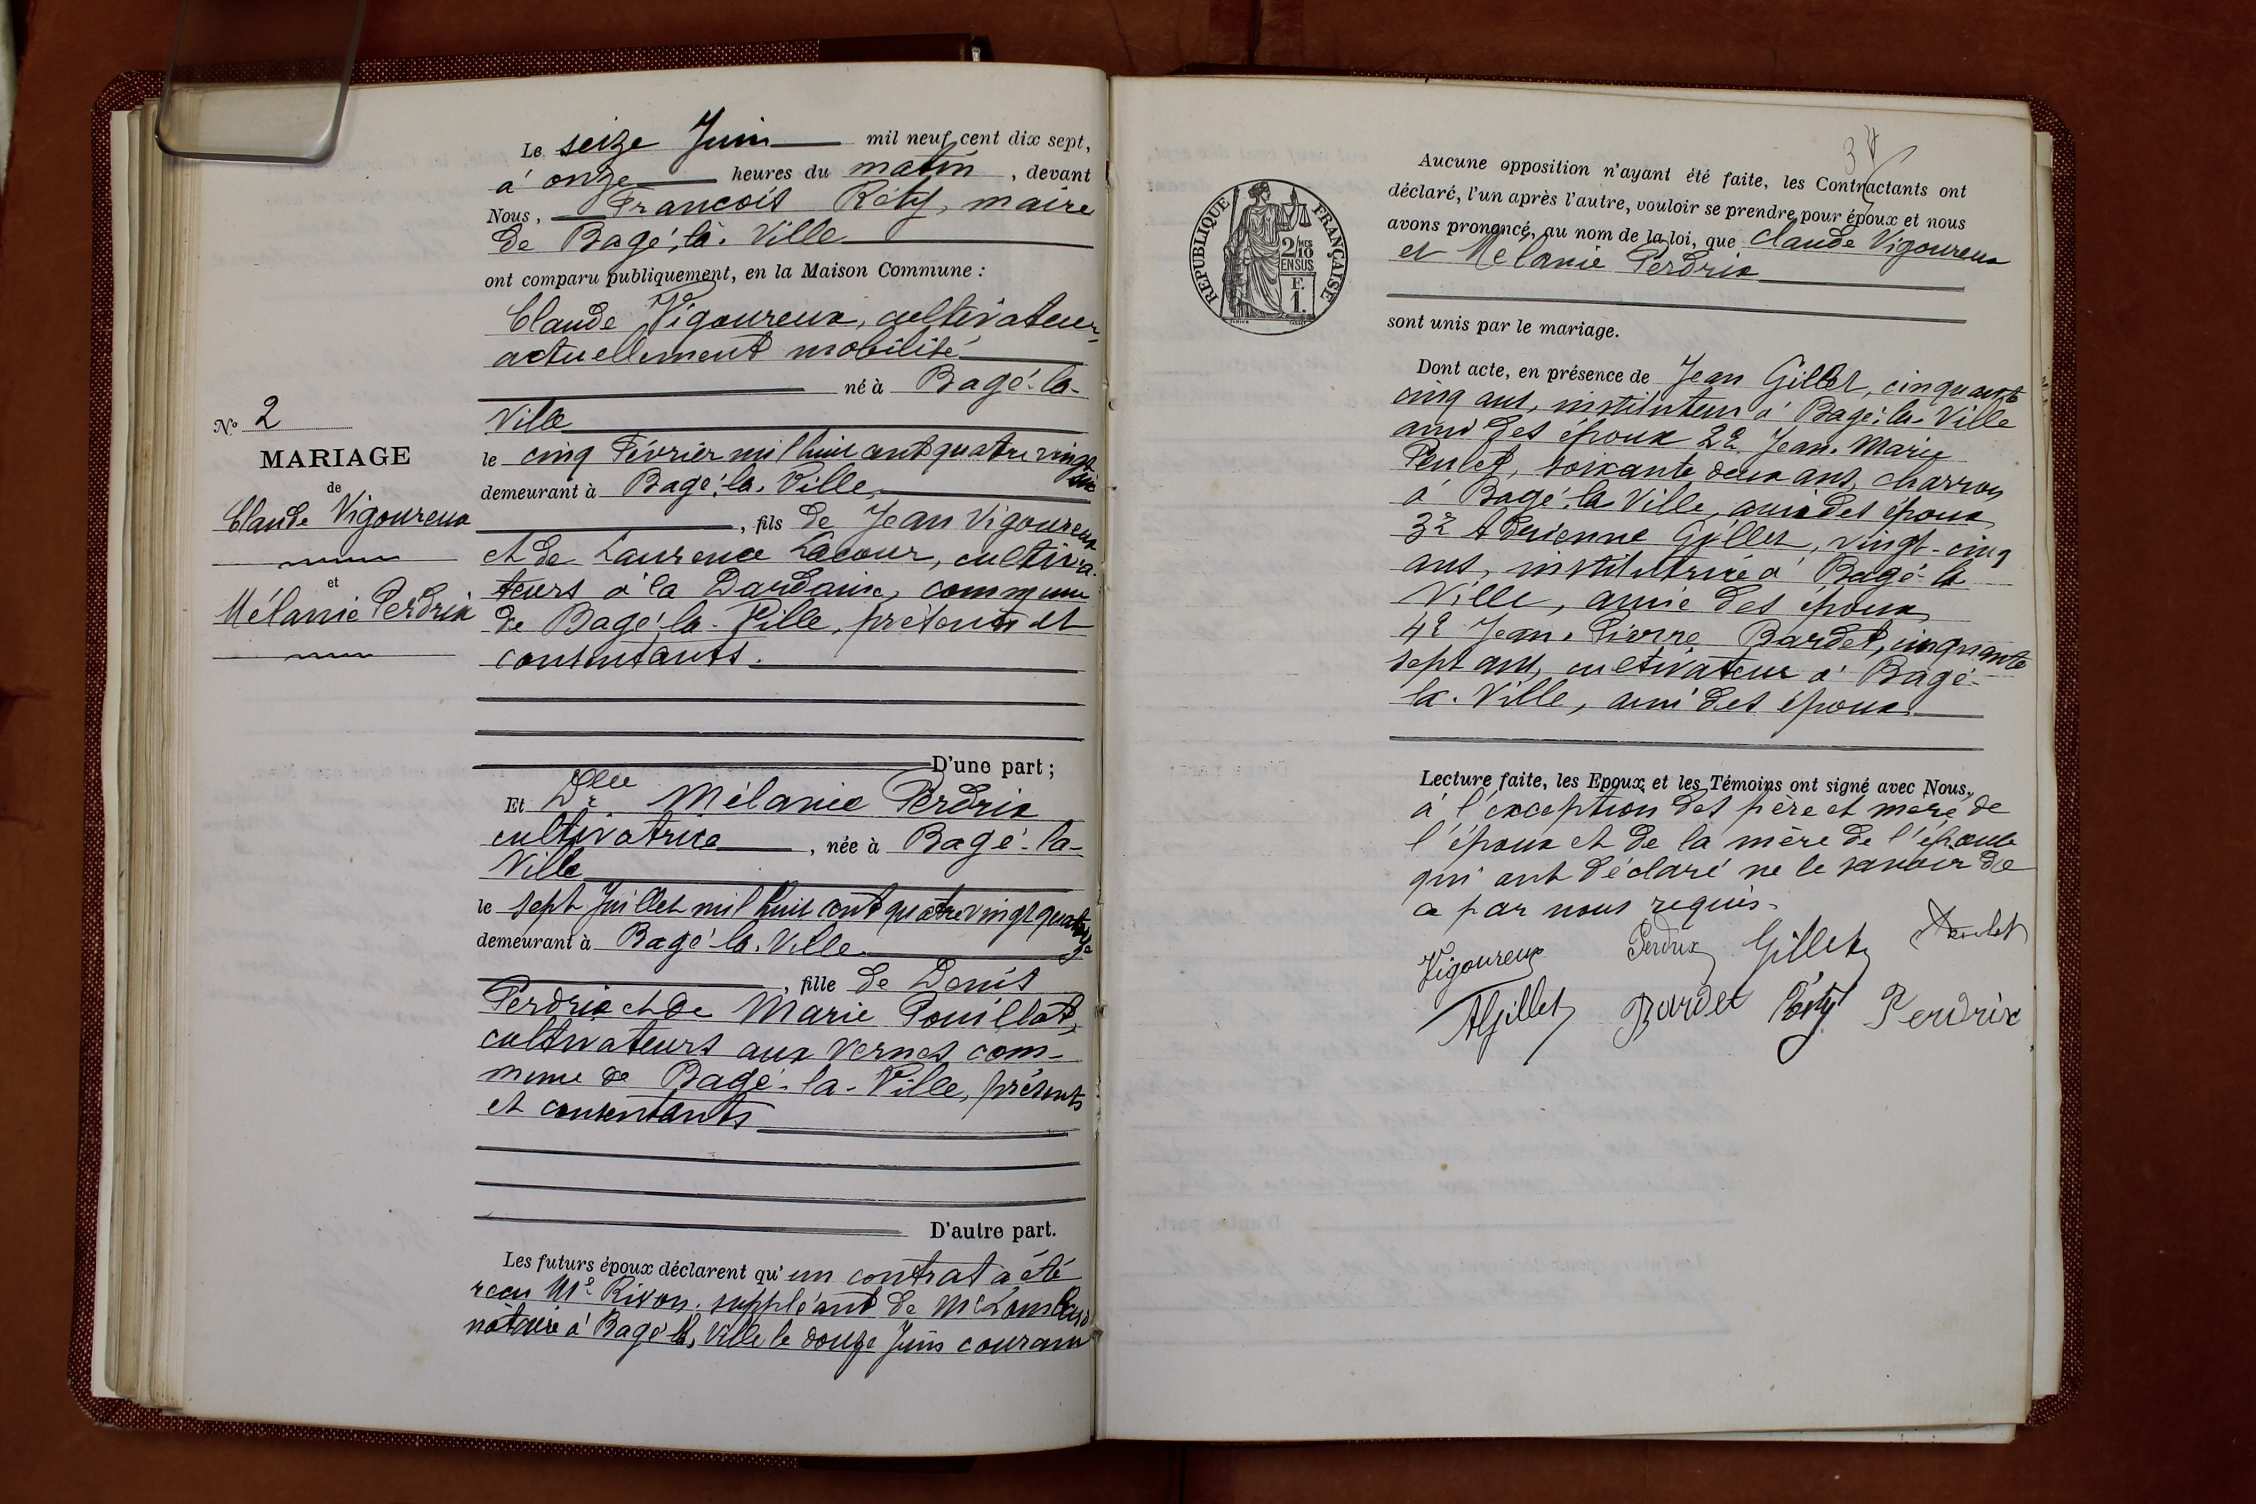 Le seize Juin mil neuf cent dix sept,
à onze heures du matin, devant
Nous, François Réty, maire
de Bagé-la-Ville
ont comparu publiquement, en la Maison Commune :
Claude Vigoureux, cultivateur
actuellement mobilisé
né à Bagé-la-
Ville
le cinq Février mil huit cent quatre vingt
dix
demeurant à Bagé-la-Ville,
, fils de Jean Vigoureux
et de Laurence Lacour, cultiva-
teurs à la commune
de Bagé-la-Ville, présents et
consentants.
D'une part ;
Et Dlle Mélanie Perdrix
cultivatrice, née à Bagé-la-
Ville
le sept Juillet mil huit cent quatre vingt quator
ze
demeurant à Bagé-la-Ville
, fille de Denis
Perdrix et de Marie Pouillat,
cultivateurs aux Vernes com-
mune de Bagé-la-Ville, présents
et consentants
D'autre part.
Les futurs époux déclarent qu'un contrat a été
reçu Me suppléant de Me
notaire à Bagé-la-Ville le douze Juin courant
No 2
MARIAGE
de
Claude Vigoureux
et
Mélanie Perdrix
RÉPUBLIQUE FRANÇAISE
2/10 MES
EN SUS
F.
1.
Aucune opposition n'ayant été faite, les Contractants ont
déclaré, l'un après l'autre, vouloir se prendre pour époux et nous
avons prononcé, au nom de la loi, que Claude Vigoureux
et Mélanie Perdrix
sont unis par le mariage.
Dont acte, en présence de Jean Gillet, cinquante
cinq ans, instituteur à Bagé-la-Ville
ami des époux 2º Jean-Marie
soixante deux ans, charron
à Bagé-la-Ville, ami des époux
3º Adrienne Gillet, vingt-cinq
ans, institutrice à Bagé-la
Ville, amie des époux
4º Jean-Pierre Bardet, cinquante
sept ans, cultivateur à Bagé-
la-Ville, ami des époux
Lecture faite, les Epoux et les Témoins ont signé avec Nous,
à l'exception des père et mère de
l'époux et de la mère de l'épouse
qui ont déclaré ne le savoir de
ce par nous requis.
Vigoureux Perdrix Gillet
AGillet Bardet Réty Perdrix